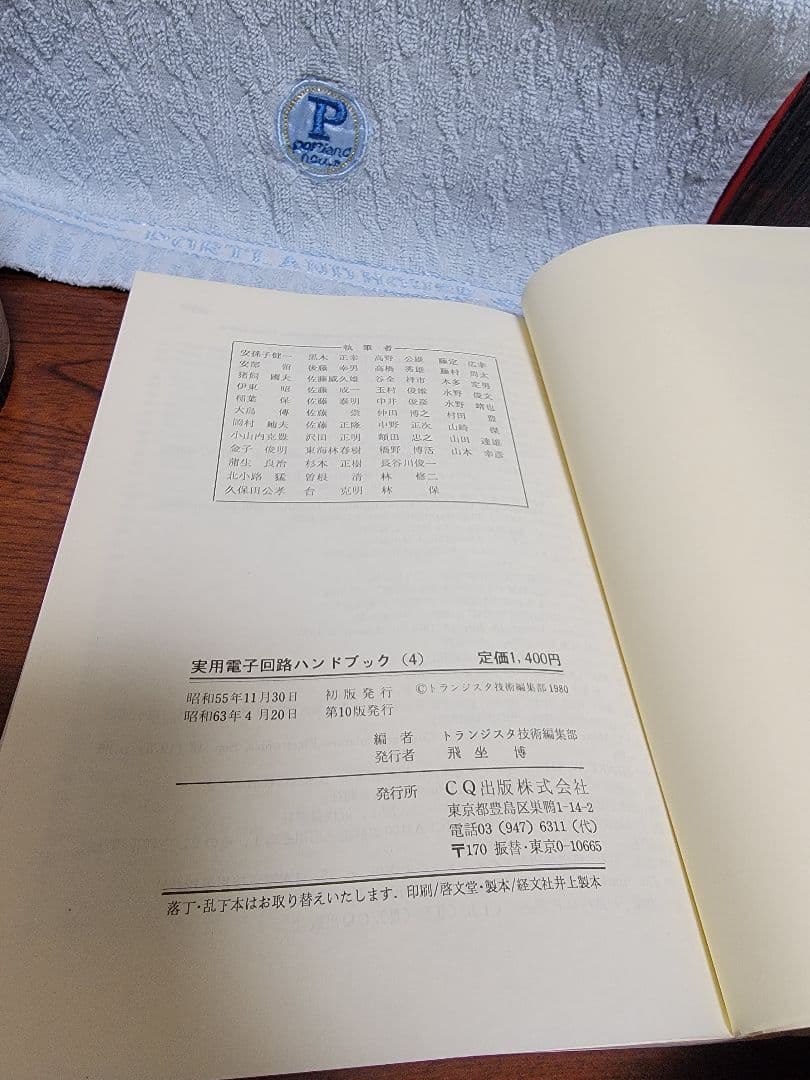 P
portland
house
執筆者
安孫子健一 黒木 正幸 高野 公雄 藤定 広幸
安部 領 後藤 幸男 高橋 秀雄 藤村 尚太
猪飼 國夫 佐藤威久雄 谷全 祥市 本多 定男
伊東 昭 佐藤 成一 玉村 俊雄 水野 俊文
稲葉 保 佐藤 泰明 中井 俊彦 水野 靖也
大島 傳 佐藤 崇 仲田 博之 村田 豊
岡村 廸夫 佐藤 正隆 中野 正次 山崎 傑
小山内克豊 沢田 正明 額田 忠之 山田 達雄
金子 俊明 東海林春樹 橋野 博活 山本 幸彦
蒲生 良治 杉本 正樹 長谷川俊一
北小路 猛 曽根 清 林 修二
久保田公孝 台 克明 林 保
実用電子回路ハンドブック(4) 定価1,400円
昭和55年11月30日 初版発行 ©トランジスタ技術編集部1980
昭和63年4月20日 第10版発行
編者 トランジスタ技術編集部
発行者 飛坐 博
発行所 CQ出版株式会社
東京都豊島区巣鴨1-14-2
電話03(947)6311(代)
〒170 振替・東京0-10665
落丁・乱丁本はお取り替えいたします. 印刷/啓文堂・製本/経文社井上製本